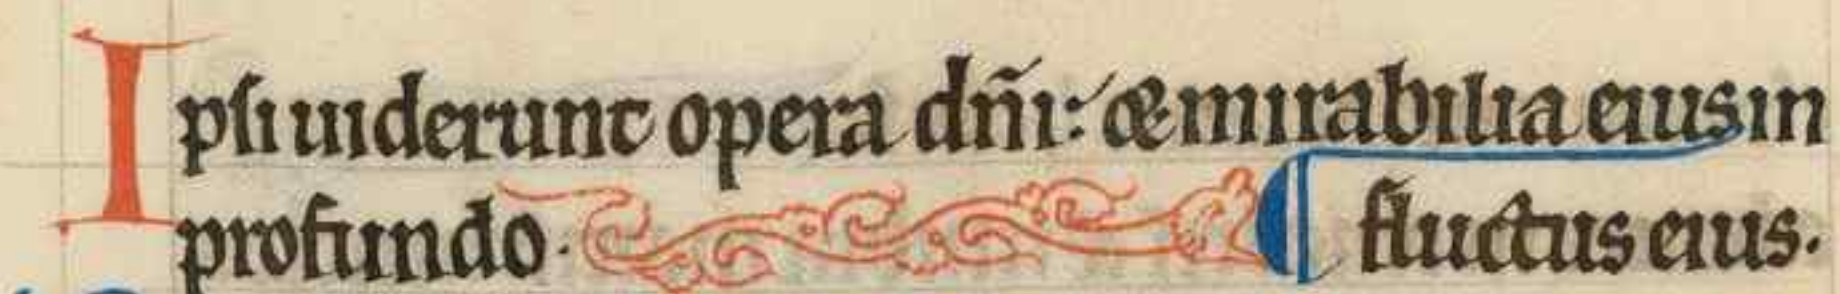 Ipsi uiderunt opera dn̄i: & mirabilia eius in
profundo. ¶ fluctus eius.